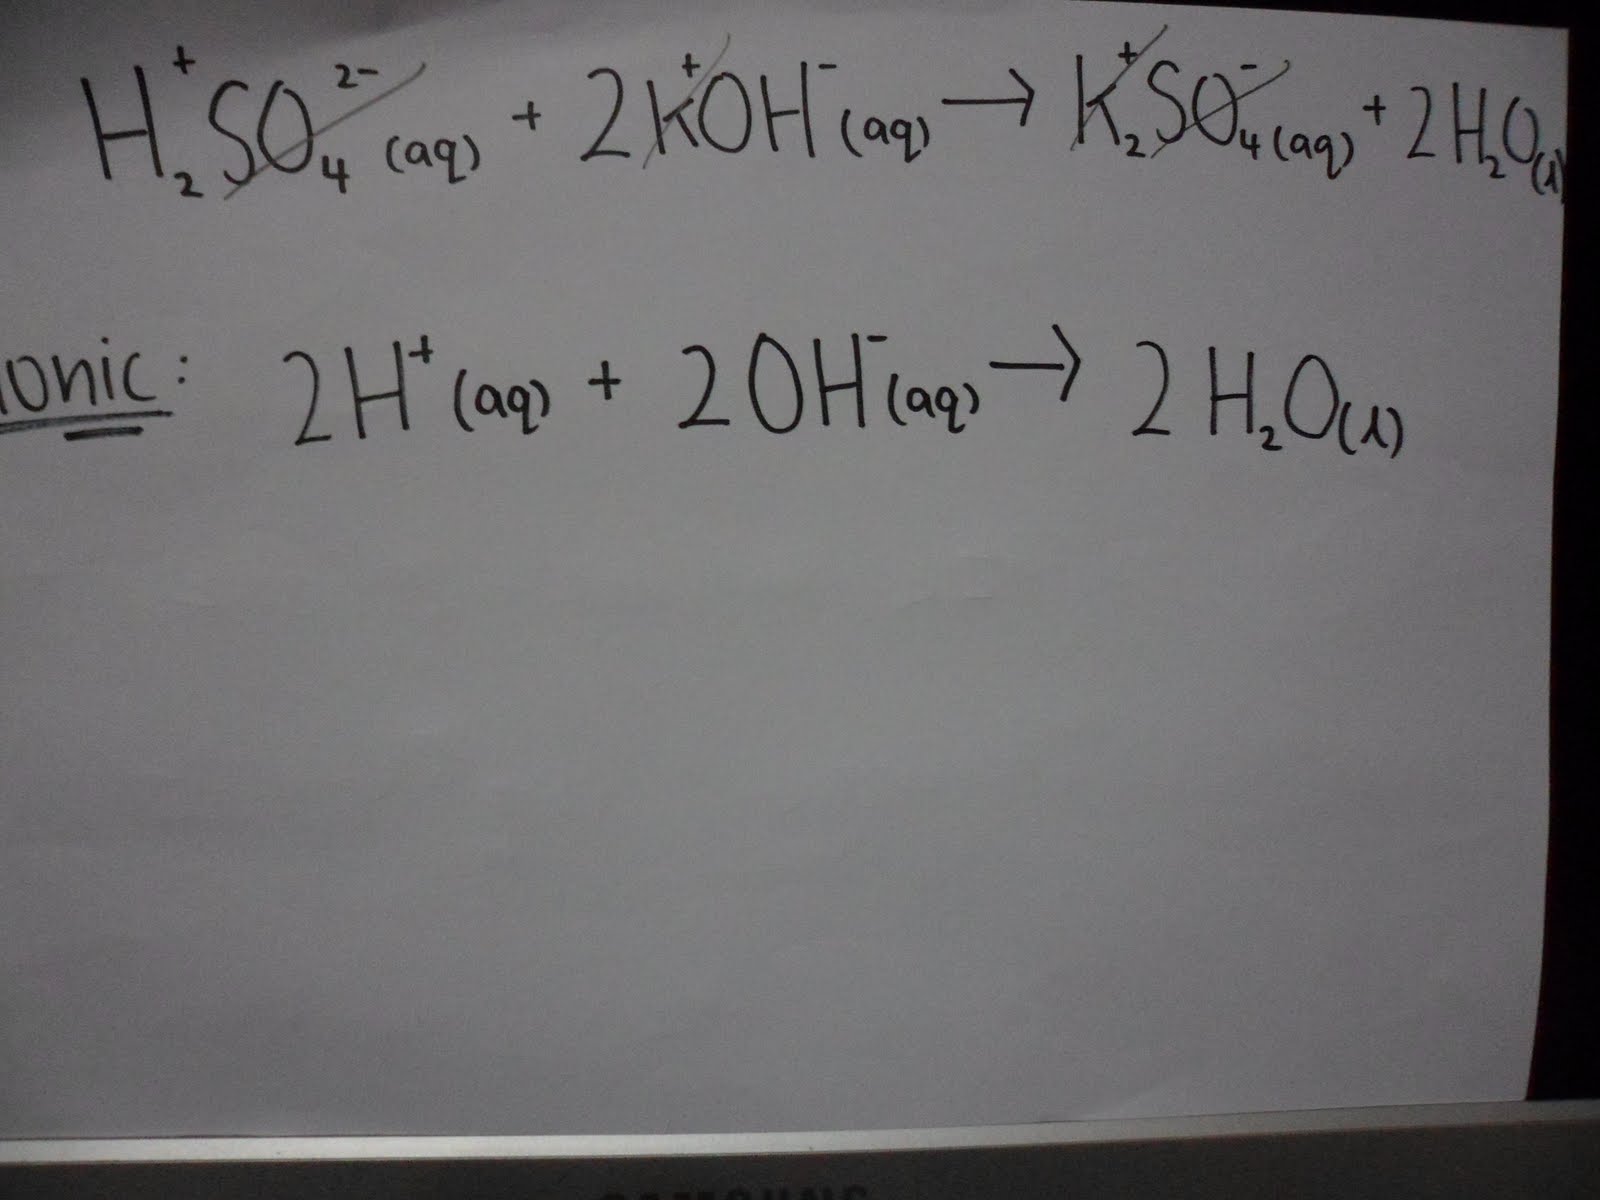 H₂⁺SO₄²⁻ (aq) + 2K⁺OH⁻ (aq) → K₂⁺SO₄⁻ (aq) + 2H₂O(l)
ionic: 2H⁺ (aq) + 2OH⁻ (aq) → 2H₂O(l)